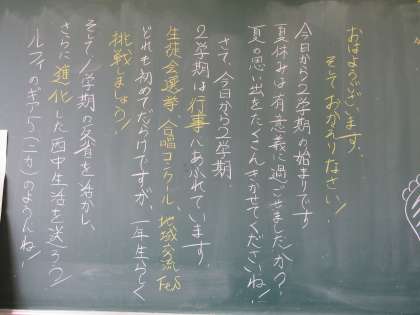 おはようございます。
そしておかえりなさい!
今日から2学期の始まりです
夏休みは有意義に過ごせましたか?
夏の思い出をたくさんきかせてくださいね!
さて、今日から2学期。
2学期は行事にあふれています。
生徒会選挙、合唱コンクール、地域交流Fes
どれも初めてだらけですが、一年生らしく
挑戦しましょう!
そして1学期の各省を活かし、
さらに進化した西中生活を送ろう?
ルフィのギア5(ニカ)のようにね!